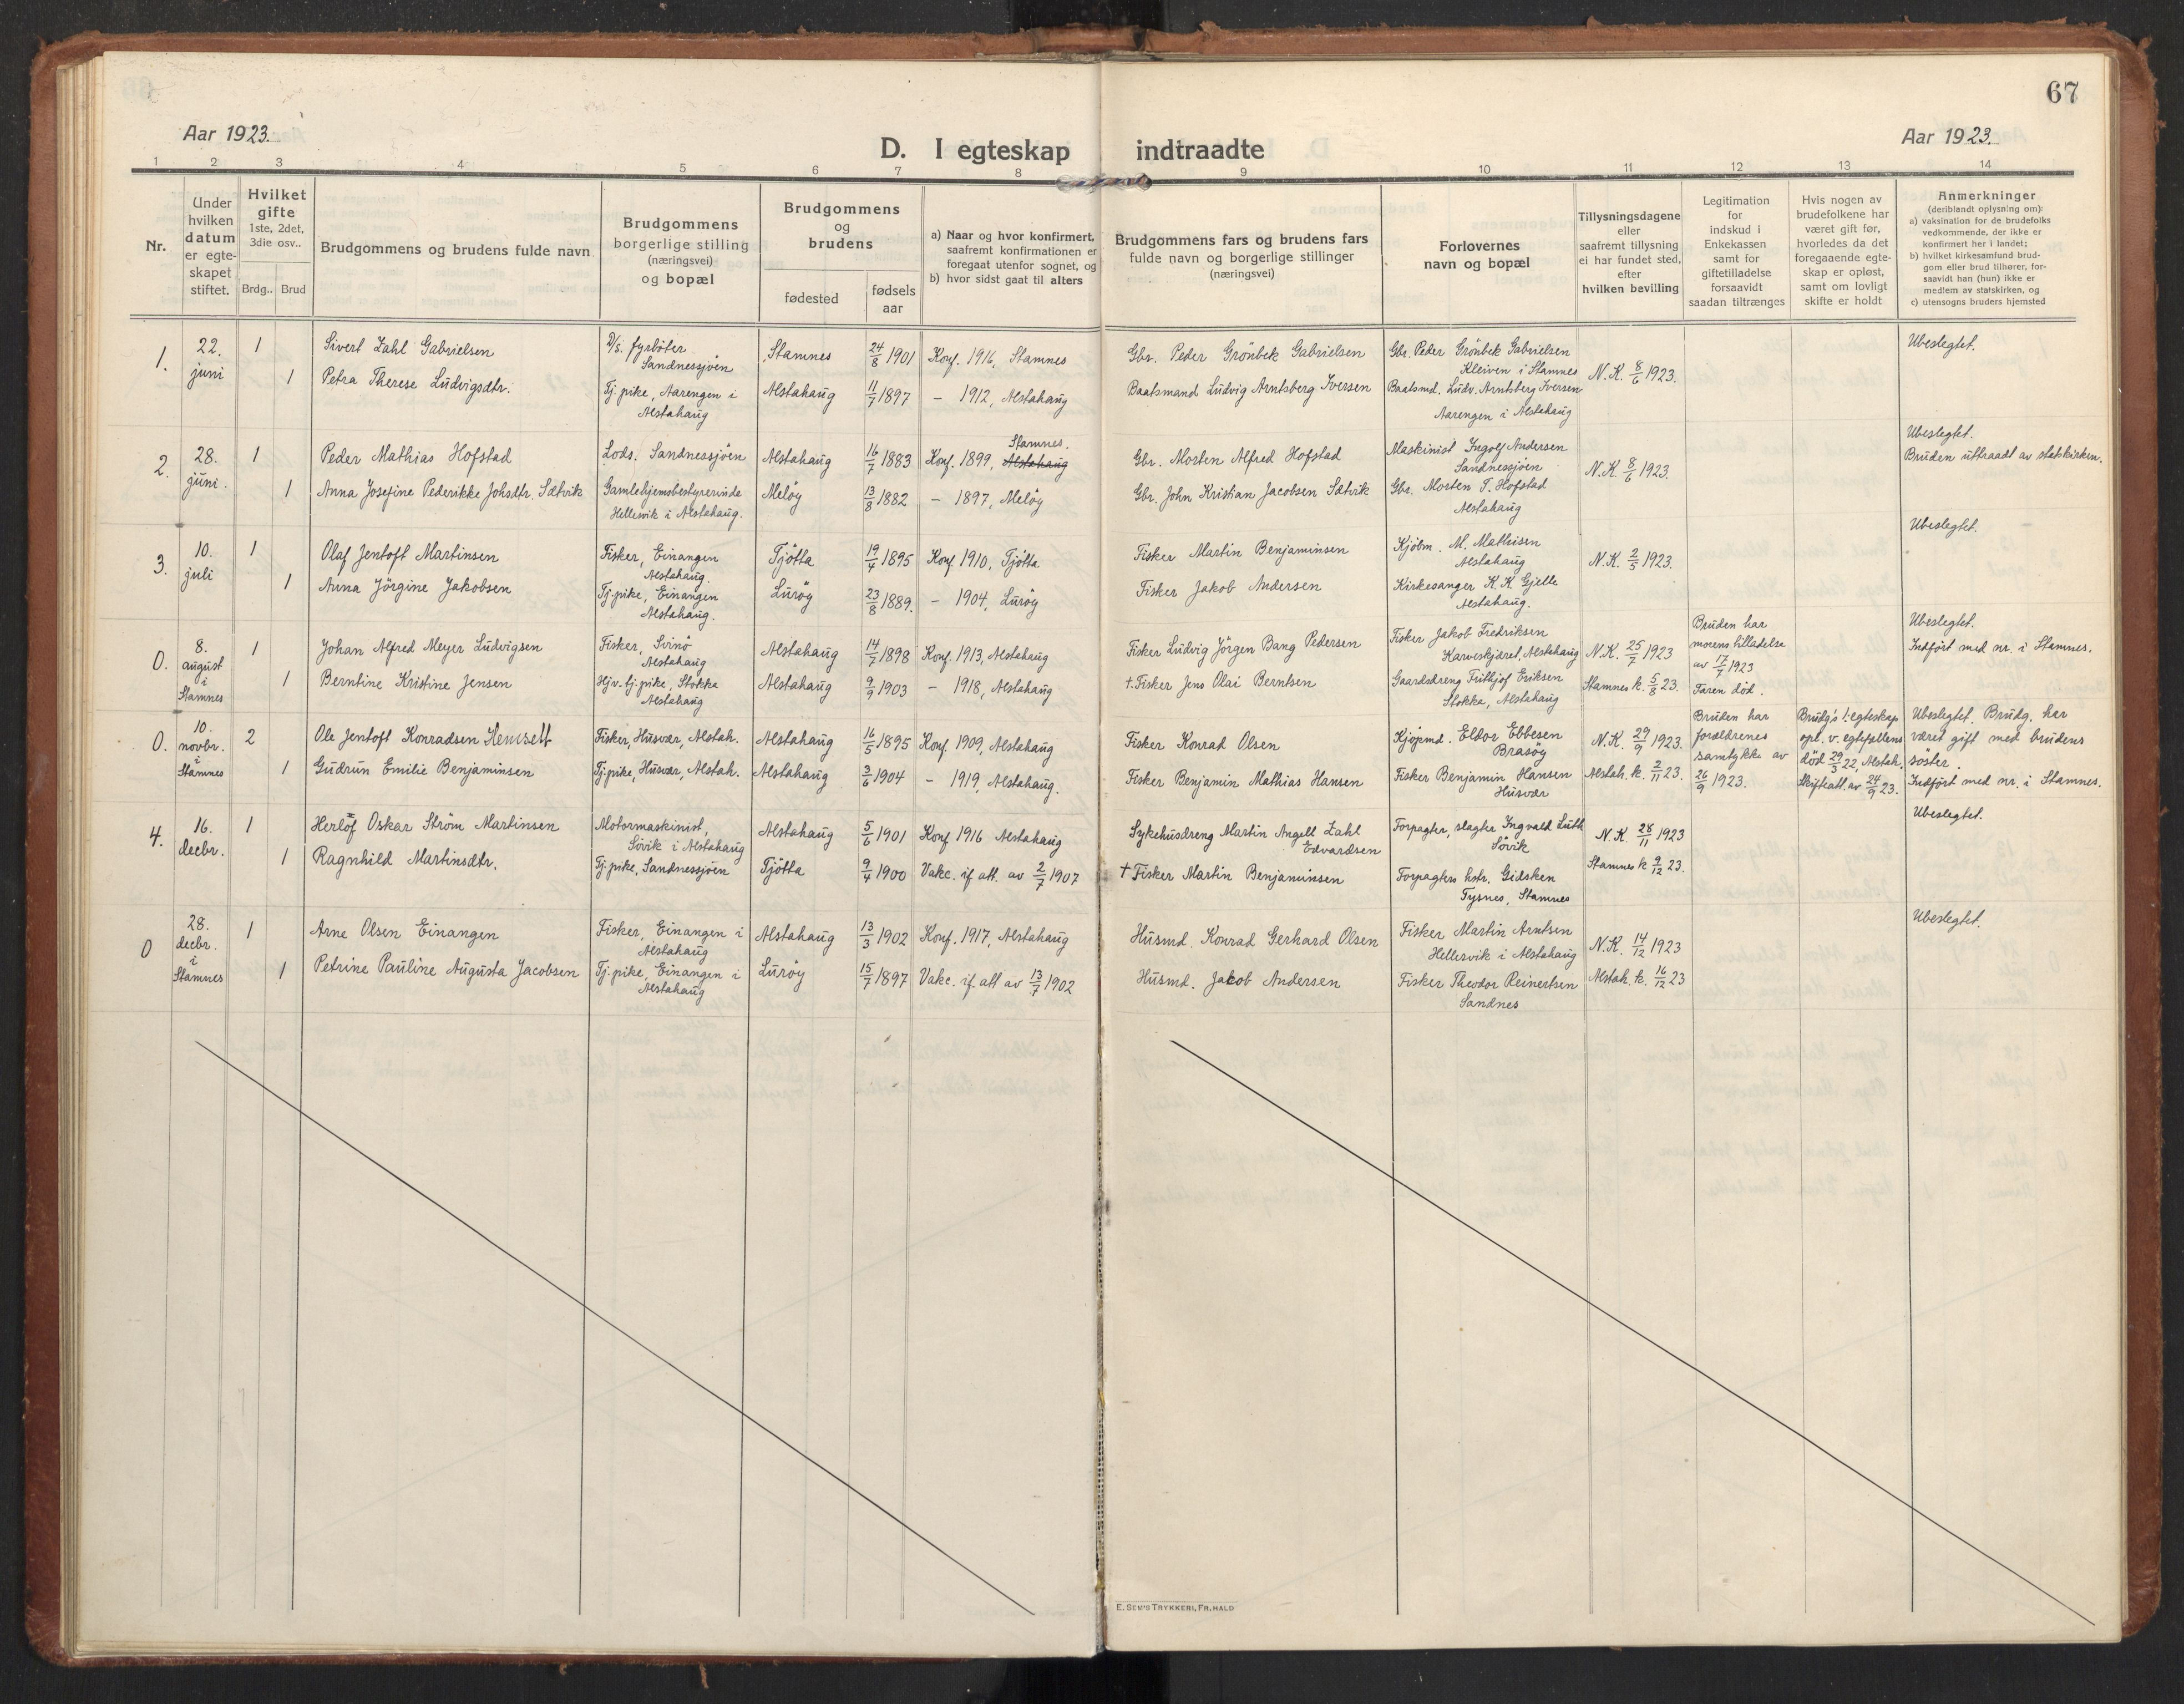 67
Aar 1923.
D. I egteskap indtraadte
Aar 1923.
1 2 3 4 5 6 7 8 9 10 11 12 13 14
Nr.
Under
hvilken
datum
er egte-
skapet
stiftet.
Hvilket
gifte
1ste, 2det,
3die osv..
Brdg.. Brud
Brudgommens og brudens fulde navn
Brudgommens
borgerlige stilling
(næringsvei)
og bopæl
Brudgommens
og
brudens
fødested
fødsels
aar
a) Naar og hvor konfirmert,
saafremt konfirmationen er
foregaat utenfor sognet, og
b) hvor sidst gaat til alters
Brudgommens fars og brudens fars
fulde navn og borgerlige stillinger
(næringsvei)
Forlovernes
navn og bopæl
Tillysningsdagene
eller
saafremt tillysning
ei har fundet sted,
efter
hvilken bevilling
Legitimation
for
indskud i
Enkekassen
samt for
giftetilladelse
forsaavidt
saadan tiltrænges
Hvis nogen av
brudefolkene har
været gift før,
hvorledes da det
foregaaende egte-
skap er opløst,
samt om lovligt
skifte er holdt
Anmerkninger
(deriblandt oplysning om):
a) vaksination for de brudefolks
vedkommende, der ikke er
konfirmert her i landet;
b) hvilket kirkesamfund brud-
gom eller brud tilhører, for-
saavidt han (hun) ikke er
medlem av statskirken, og
c) utensogns bruders hjemsted
1.
22.
juni
1
1
Sivert Zahl Gabrielsen
Petra Therese Ludvigsdtr.
D/s. fyrbøter
Sandnessjøen
Tj. pike, Aarengen i
Alstahaug
Stamnes
Alstahaug
24/8 1901
11/7 1897
Konf. 1916, Stamnes
– 1912, Alstahaug
Gbr. Peder Grönbek Gabrielsen
Baatsmand Ludvig Arntsberg Iversen
Gbr. Peder Grönbek Gabrielsen
Kleiven i Stamnes
Baatsmd. Ludv. Arntsberg Iversen
Aarengen i Alstahaug
N.K. 8/6 1923.
Ubeslegtet.
2.
28.
juni.
1
1
Peder Mathias Hofstad
Anna Josefine Pederikke Johsdtr. Sætvik
Lods. Sandnessjøen
Gamlehjemsbestyrerinde
Hellesvik i Alstahaug.
Alstahaug
Meløy
16/7 1883
13/8 1882
Stamnes.
Konf. 1899, Alstahaug
– 1897, Meløy
Gbr. Morten Alfred Hofstad
Gbr. John Kristian Jacobsen Sætvik
Maskinist Ingolf Andersen
Sandnessjøen
Gbr. Morten T. Hofstad
Alstahaug
N.K. 8/6 1923.
Ubeslegtet.
Bruden uttraadt av statskirken.
3.
10.
juli
1
1
Olaf Jentoft Martinsen
Anna Jörgine Jakobsen
Fisker, Einangen
Alstahaug.
Tj. pike, Einangen
Alstahaug.
Tjøtta
Lurøy
19/4 1895
23/8 1889.
Konf. 1910, Tjøtta
– 1904, Lurøy
Fisker Martin Benjaminsen
Fisker Jakob Andersen
Kjöbm. M. Mathisen
Alstahaug
Kirkesanger K. K. Gjelle
Alstahaug.
N.K. 2/5 1923.
Ubeslegtet.
0.
8.
august
i
Stamnes
1
1
Johan Alfred Meyer Ludvigsen
Berntine Kristine Jensen
Fisker, Svinø
Alstahaug
Hjv. tj. pike, Stokka
Alstahaug
Alstahaug
Alstahaug
14/7 1898
9/9 1903
Konf. 1913, Alstahaug
– 1918, Alstahaug
Fisker Ludvig Jörgen Bang Pedersen
†. Fisker Jens Olai Berntsen
Fisker Jakob Fredriksen
Karveskjæret, Alstahaug
Gaardsdreng Fritbjof Eriksen
Stokka, Alstahaug
N.K. 25/7 1923
Stamnes k. 5/8 23.
Bruden har
morens tilladelse
av 17/7 1923
Faren död.
Ubeslegtet.
Indført med nr. i Stamnes.
0.
10.
novbr.
i
Stamnes
2
1
Ole Jentoft Konradsen Hemsett
Gudrun Emilie Benjaminsen
Fisker, Husvær, Alstah.
Tj. pike, Husvær, Alstah.
Alstahaug
Alstahaug
16/5 1895
3/6 1904
Konf. 1909, Alstahaug
– 1919, Alstahaug.
Fisker Konrad Olsen
Fisker Benjamin Mathias Hansen
Kjöpmd. Eldor Ebbesen
Brasöy
Fisker Benjamin Hansen
Husvær
N.K. 29/9 1923.
Alstah. k. 2/11 23.
Bruden har
forældrenes
samtykke av
26/9 1923.
Brudg's 1. egteskap
opl. v. egtefællens
död 29/3 22, Alstah.
Skifteatt. av 24/9 23.
Ubeslegtet. Brudg. har
været gift med brudens
søster.
Indført med nr. i Stamnes.
4.
16.
decbr.
1
1
Herlöf Oskar Ström Martinsen
Ragnhild Martinsdtr.
Motormaskinist,
Søvik i Alstahaug
Tj. pike, Sandnessjøen
Alstahaug
Tjøtta
5/6 1901
9/4 1900
Konf 1916 Alstahaug
Vakc. if att. av 2/7 1907
Sykehusdreng Martin Angell Zahl
Edvardsen
† Fisker Martin Benjaminsen
Forpagter, slagter Ingvald Luth
Søvik
Forpagters hstr. Gidsken
Tysnes, Stamnes
N.K. 28/11 1923
Stamnes k 9/12 23.
Ubeslegtet.
0
28.
decbr.
i
Stamnes
1
1
Arne Olsen Einangen
Petrine Pauline Augusta Jacobsen
Fisker, Einangen i
Alstahaug
Tj. pike, Einangen i
Alstahaug
Alstahaug
Lurøy
13/3 1902
15/7 1897
Konf. 1917, Alstahaug
Vakc. if. att av 13/7 1902
Husmd. Konrad Gerhard Olsen
Husmd. Jakob Andersen
Fisker Martin Arntsen
Hellesvik i Alstahaug
Fisker Theodor Reinertsen
Sandnes
N.K. 14/12 1923
Alstah. k. 16/12 23
Ubeslegtet.
E. SEM'S TRYKKERI, FR.HALD